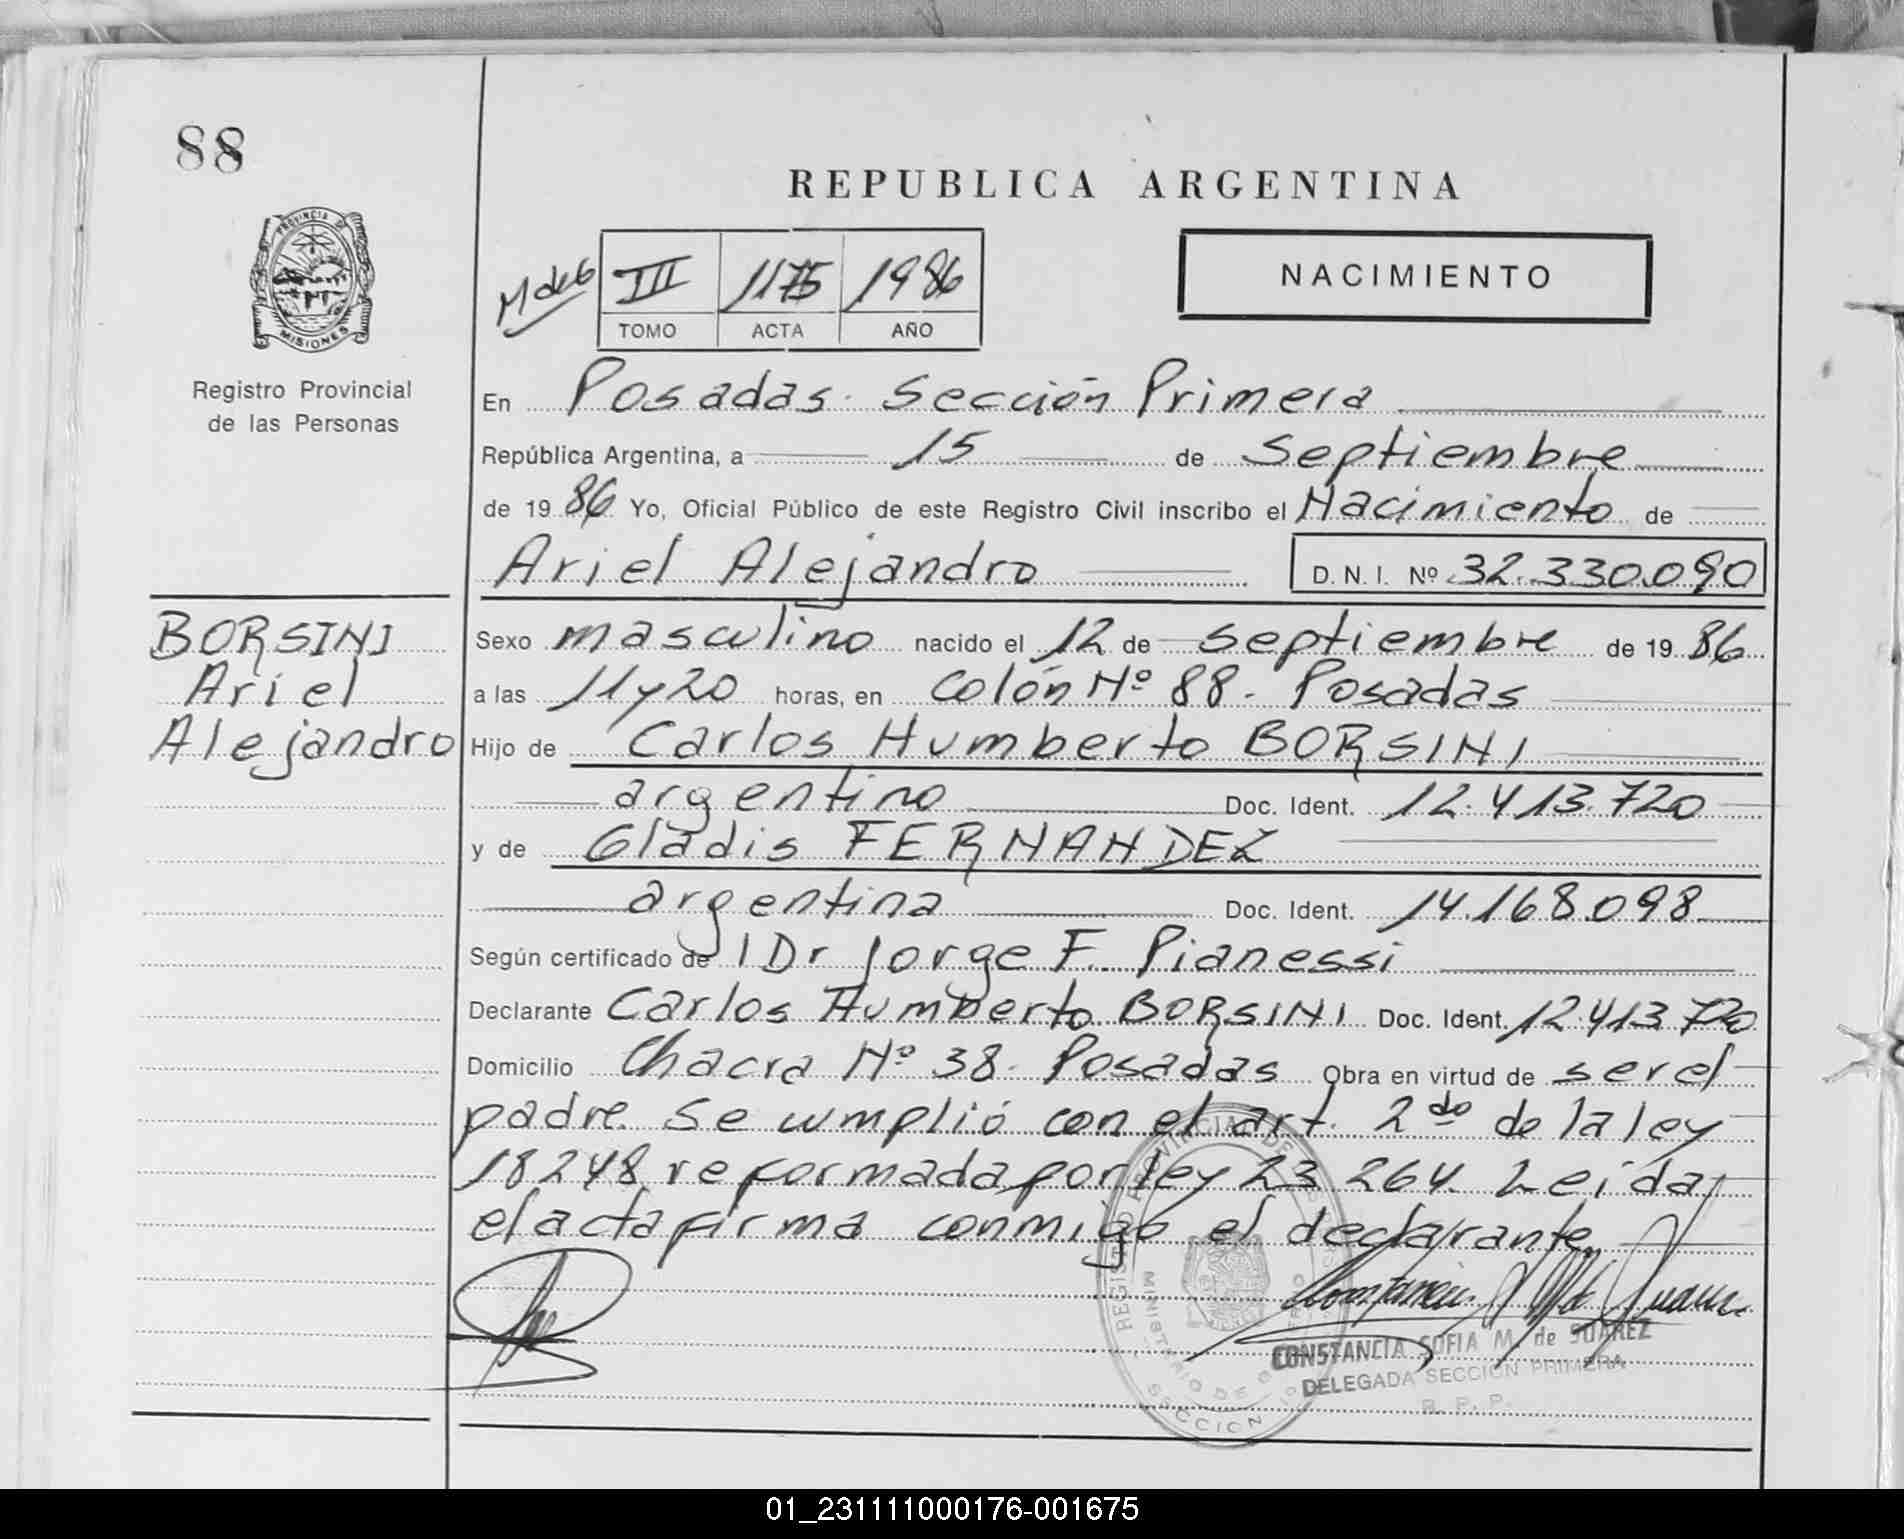 88
REPUBLICA ARGENTINA
PROVINCIA DE
MISIONES
Registro Provincial
de las Personas
M de 6
III 1175 1986
TOMO ACTA AÑO
NACIMIENTO
En Posadas. Sección Primera
República Argentina, a 15 de Septiembre
de 1986 Yo, Oficial Público de este Registro Civil inscribo el Nacimiento de
Ariel Alejandro D.N.I. Nº 32.330.090
BORSINI
Ariel
Alejandro
Sexo masculino nacido el 12 de septiembre de 1986
a las 11 y 20 horas, en Colón Nº 88. Posadas
Hijo de Carlos Humberto BORSINI
argentino Doc. Ident. 12.413.720
y de Gladis FERNANDEZ
argentina Doc. Ident. 14.168.098
Según certificado de l Dr Jorge F. Pianessi
Declarante Carlos Humberto BORSINI Doc. Ident. 12.413.720
Domicilio Chacra Nº 38. Posadas Obra en virtud de ser el
padre. Se cumplió con el art. 2do de la ley
18248 reformada por ley 23.264. Leída
el acta firma conmigo el declarante
CONSTANCIA SOFIA M. de SUAREZ
DELEGADA SECCION PRIMERA
R. P. P.
01_231111000176-001675